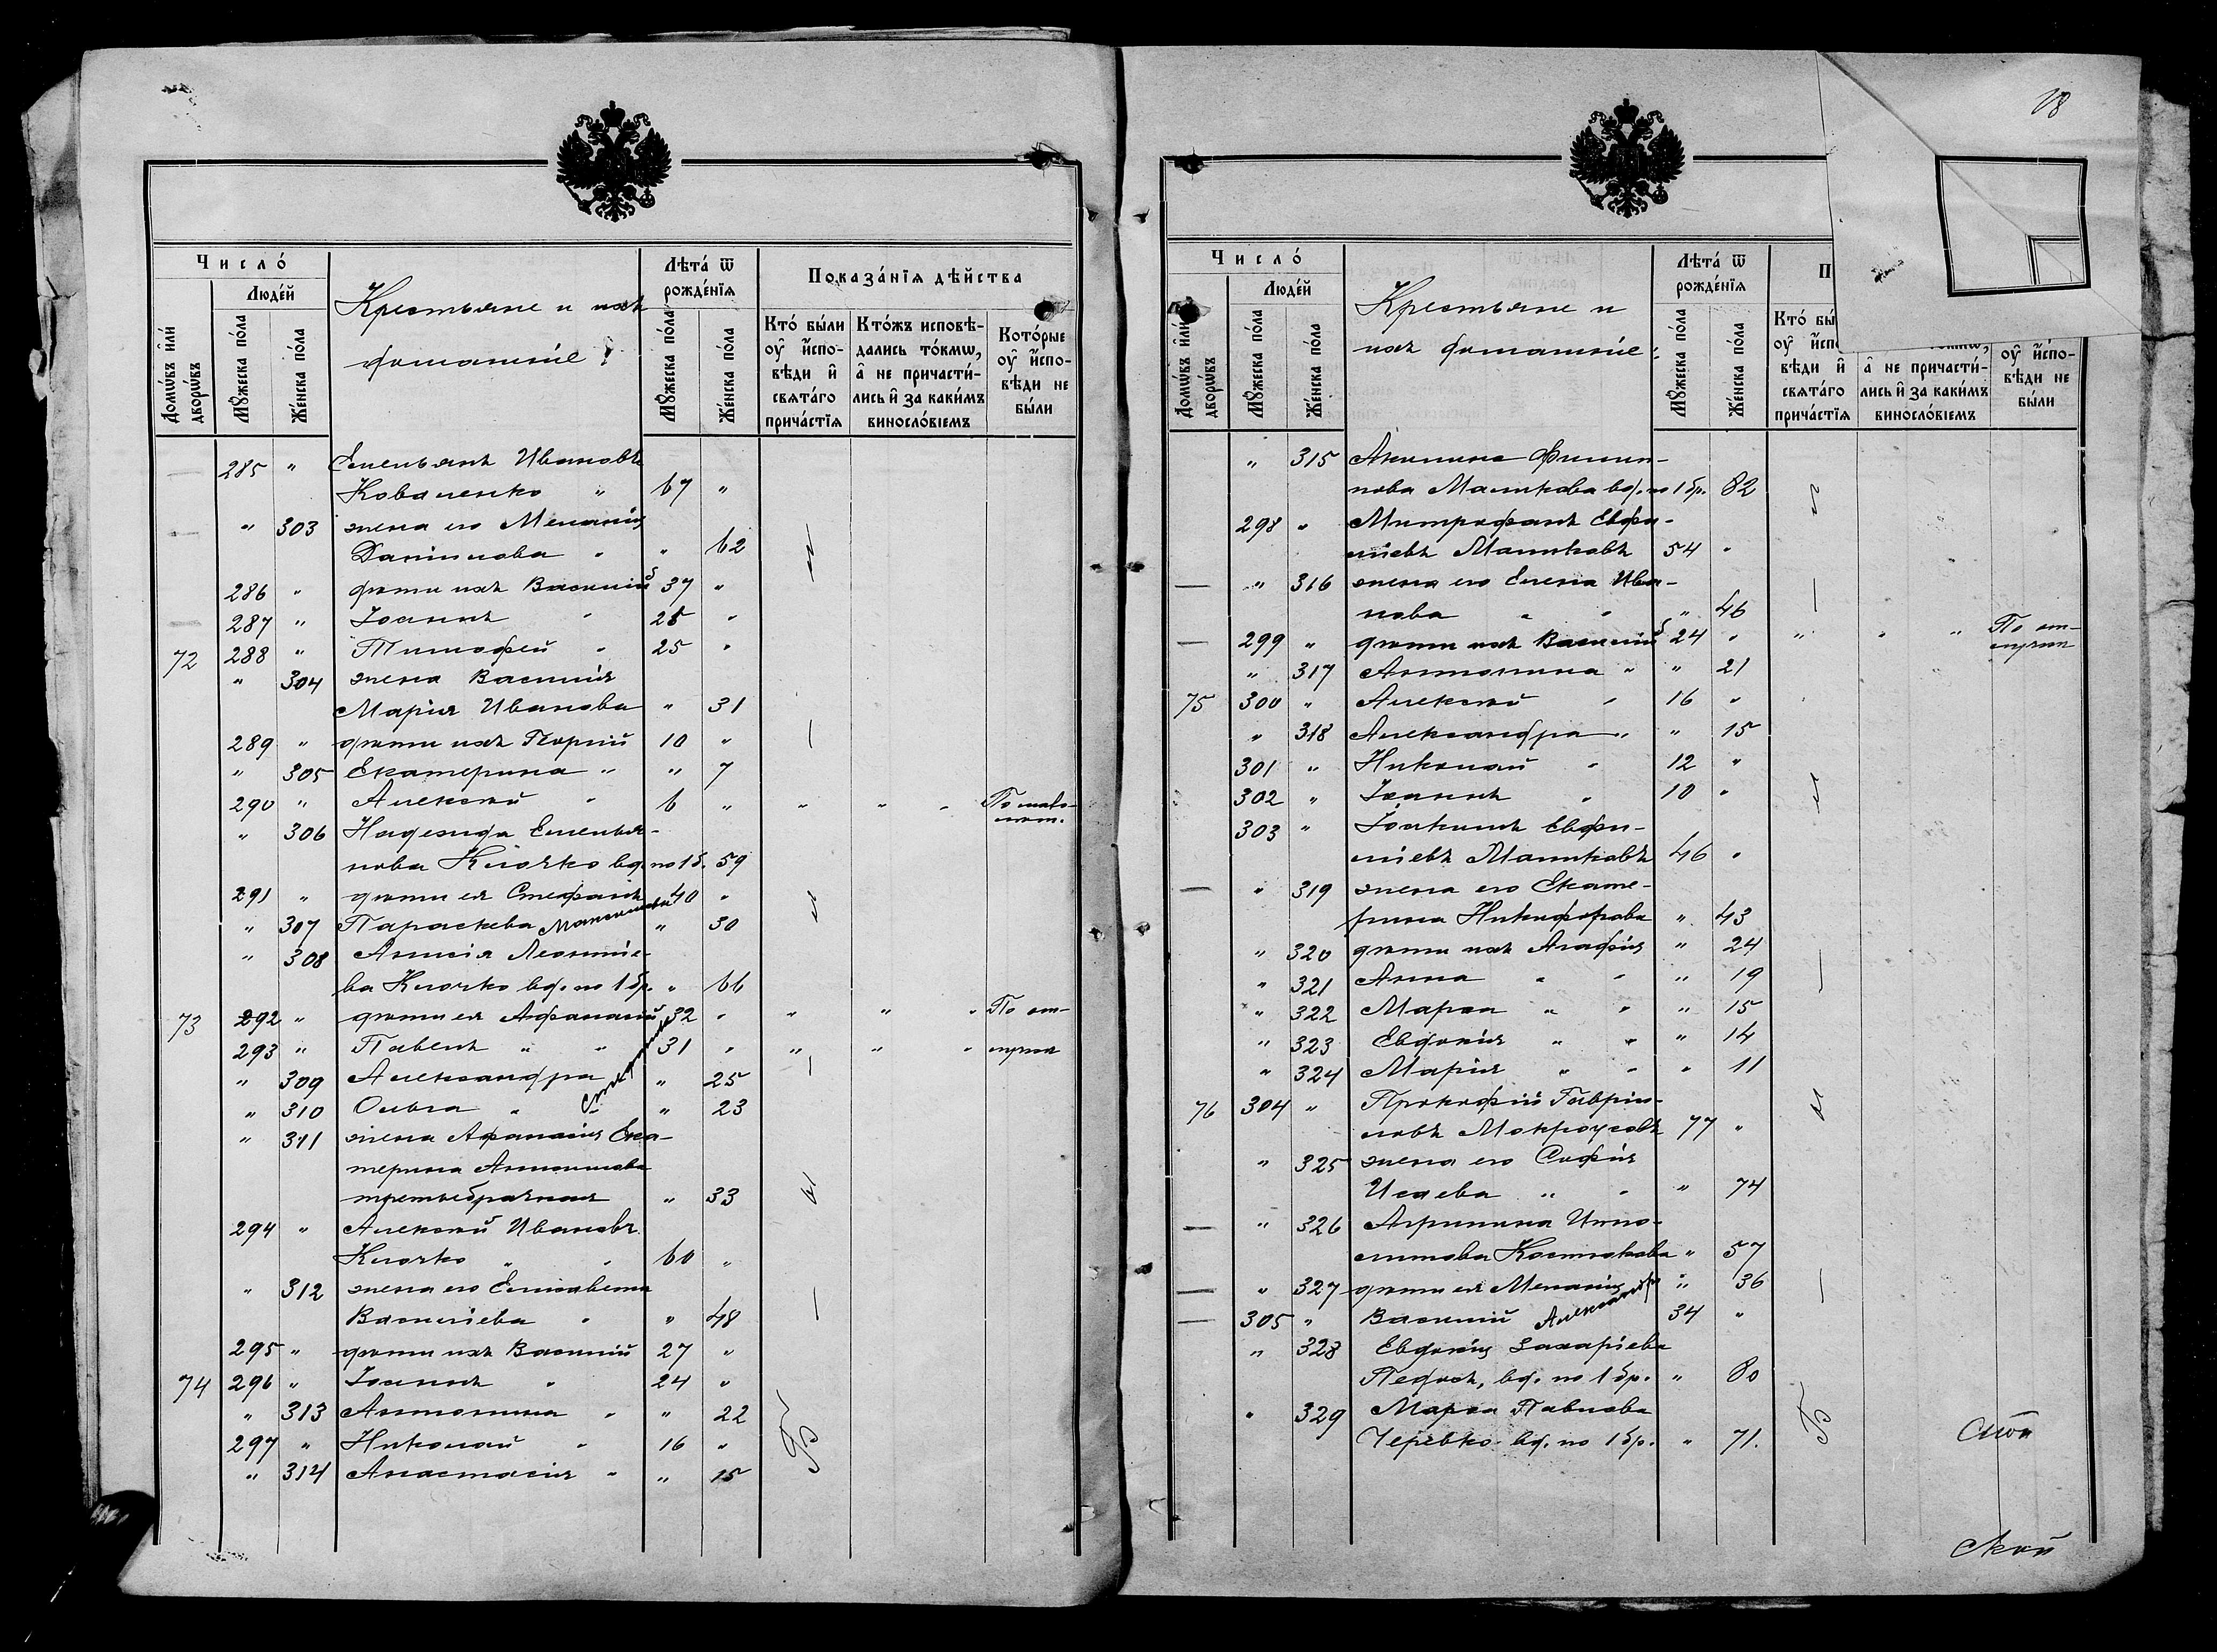 18
Число́
Люде́й
Домѡвъ и҆лѝ дворѡвъ
Мꙋжеска по́ла
Же́нска по́ла
Крестьяне и ихъ
домашніе:
Лѣта́ ѿ рожде́нїѧ
Мꙋжеска по́ла
Же́нска по́ла
Показа́нїѧ дѣ́йства
Кто̀ бы́ли оу҆ и҆спо-
вѣди и҆ свѧта́го прича́стїѧ
Кто́жъ исповѣ-
дались то́кмѡ, а҆ не причасти́-
лись и҆ за каки́мъ винослóвїемъ
Кото́рые оу҆ и҆спо-
вѣди не бы́ли
285 " Емельянъ Ивановъ
Коваленко " 67 "
" 303 жена его Меланія
Даніилова " " 62
286 " дѣти ихъ Василій 37 "
287 " Іоаннъ " 28 "
72 288 " Тимофей " 25 "
" 304 жена Василія
Марія Иванова " 31
289 " дѣти ихъ Георгій 10 "
" 305 Екатерина " " 7
290 " Алексѣй " 6 " " " " По мало-
лѣт.
" 306 Надежда Емелья-
нова Клочко вд. по 1 б. 59
291 " дѣти ея Стефанъ 40 "
" 307 Параскева Максимова " 30
" 308 Анисія Леонтіе-
ва Клочко вд. по 1 бр. " 66
73 292 " дѣти ея Афанасій 32 " " " " По от-
293 " Павелъ " " 31 " " " " лучкѣ
" 309 Александра " 25
" 310 Ольга " " 23
" 311 жена Афанасія Ека-
терина Антонова
третьебрачная " 33
294 " Алексѣй Ивановъ
Клочко " " 60 "
" 312 жена его Елисавета
Васильева " " 48
295 " дѣти ихъ Василій 27 "
74 296 " Іоаннъ " 24 "
" 313 Антонина " " 22
297 " Николай " 16 "
" 314 Анастасія " " 15
Число́
Люде́й
Домѡвъ и҆лѝ дворѡвъ
Мꙋжеска по́ла
Же́нска по́ла
Крестьяне и
ихъ домашніе:
Лѣта́ ѿ рожде́нїѧ
Мꙋжеска по́ла
Же́нска по́ла
П
Кто̀ бы́
оу҆ и҆спо
вѣди и҆ свѧта́го прича́стїѧ
а҆ не причасти́-
лись и҆ за каки́мъ винослóвїемъ
оу҆ и҆спо-
вѣди не бы́ли
" 315 Акилина Филип-
пова Маликова вд. по 1 бр. 82
298 " Митрофанъ Евфи-
міевъ Маликовъ 54 "
" 316 жена его Елена Ива-
нова " " " 46
299 " дѣти ихъ Василій 24 " " " " По от-
лучкѣ
" 317 Антонина " " 21
75 300 " Алексѣй " 16 "
" 318 Александра " " 15
301 " Николай " 12 "
302 " Іоаннъ " 10 "
303 " Іоакимъ Евфи-
міевъ Маликовъ 46 "
" 319 жена его Екате-
рина Никифорова " 43
" 320 дѣти ихъ Агафія " 24
" 321 Анна " " " 19
" 322 Марѳа " " " 15
" 323 Евдокія " " " 14
" 324 Марія " " " 11
76 304 " Прокофій Гаврии-
ловъ Мокроусовъ 77 "
" 325 жена его Софія
Исаева " " " 74
" 326 Агрипина Иппо-
литова Костюкова " 57
" 327 дѣти ея Меланія " 36
305 " Василій Александр. 34 "
" 328 Евдокія Захаріева
вд. по 1 бр. " 80
" 329 Марѳа Павлова
Черевко вд. по 1 бр. " 71.